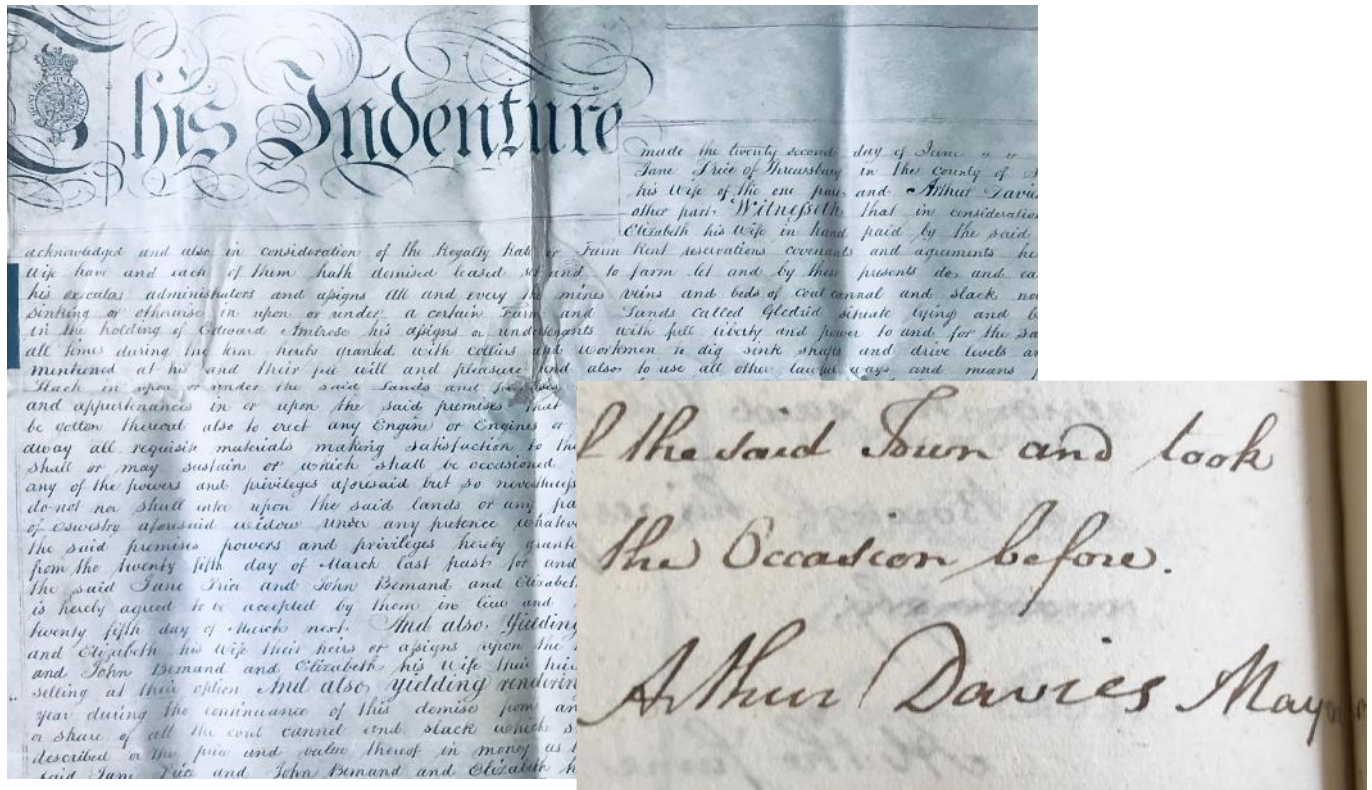 This Indenture
made the twenty second day of June
Jane Price of Shrewsbury in the county of
his Wife of the one part and Arthur Davies
other part Witnesseth that in consideration
Elizabeth his Wife in hand paid by the said
acknowledged and also in consideration of the Royalty Rate or Farm Rent reservations covenants and agreements he
Wife have and each of them hath demised leased set and to farm let and by these presents do and ea
his executors administrators and assigns All and every the mines veins and beds of coal cannal and slack no
sinking or otherwise in upon or under a certain Farm and Lands called Gledrid situate lying and b
in the holding of Edward Ambrose his assigns or undertenants with full liberty and power to and for the sa
all times during the term hereby granted with colliers and workmen to dig sink shafts and drive levels an
mentioned at his and their free will and pleasure and also to use all other lawful ways and means
Slack in upon or under the said Lands and premises
and appurtenances in or upon the said premises that
be gotten thereout also to erect any Engine or Engines or
away all requisite materials making satisfaction to the
shall or may sustain or which shall be occasioned
any of the powers and privileges aforesaid but so nevertheless
do not nor shall enter upon the said lands or any pa
of Oswestry aforesaid widow under any pretence whatev
the said premises powers and privileges hereby grante
from the twenty fifth day of March last past for and
the said Jane Price and John Bemand and Elizabeth
is hereby agreed to be accepted by them in lieu and
twenty fifth day of March next. And also Yielding
and Elizabeth his Wife their heirs or assigns upon the
and John Bemand and Elizabeth his Wife their hei
selling at their option And also yielding renderin
year during the continuance of this demise from an
or share of all the coal cannel and slack which s
described or the price and value thereof in money as
said Jane Price and John Bemand and Elizabeth h
the said Town and took
the Occasion before.
Arthur Davies Mayor